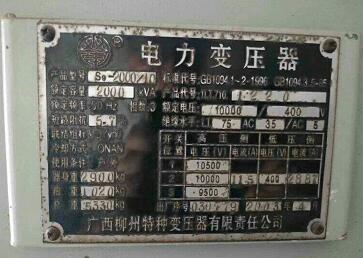 电力变压器
产品型号 S9-2000/10 标准代号 GB1094.1~2-1996 GB1094.3.5-85
额定容量 2000 kVA 产品代号 1LT.710.
额定频率 50 Hz 相数 3 额定电压 10000 / 400
短路阻抗 5. 绝缘水平 LI 75 AC 35 / AC 5
联结组标号 开关 高压侧 低压侧
使用条件 户外 电压(V) 电流(A) 电压(V) 电流(A)
冷却方式 ONAN 1 10500
器身重 2900 kg 2 10000 400
油重 1020 kg 3 9500
总重 5330 kg 出厂序号 2003 年 4 月
广西柳州特种变压器有限责任公司